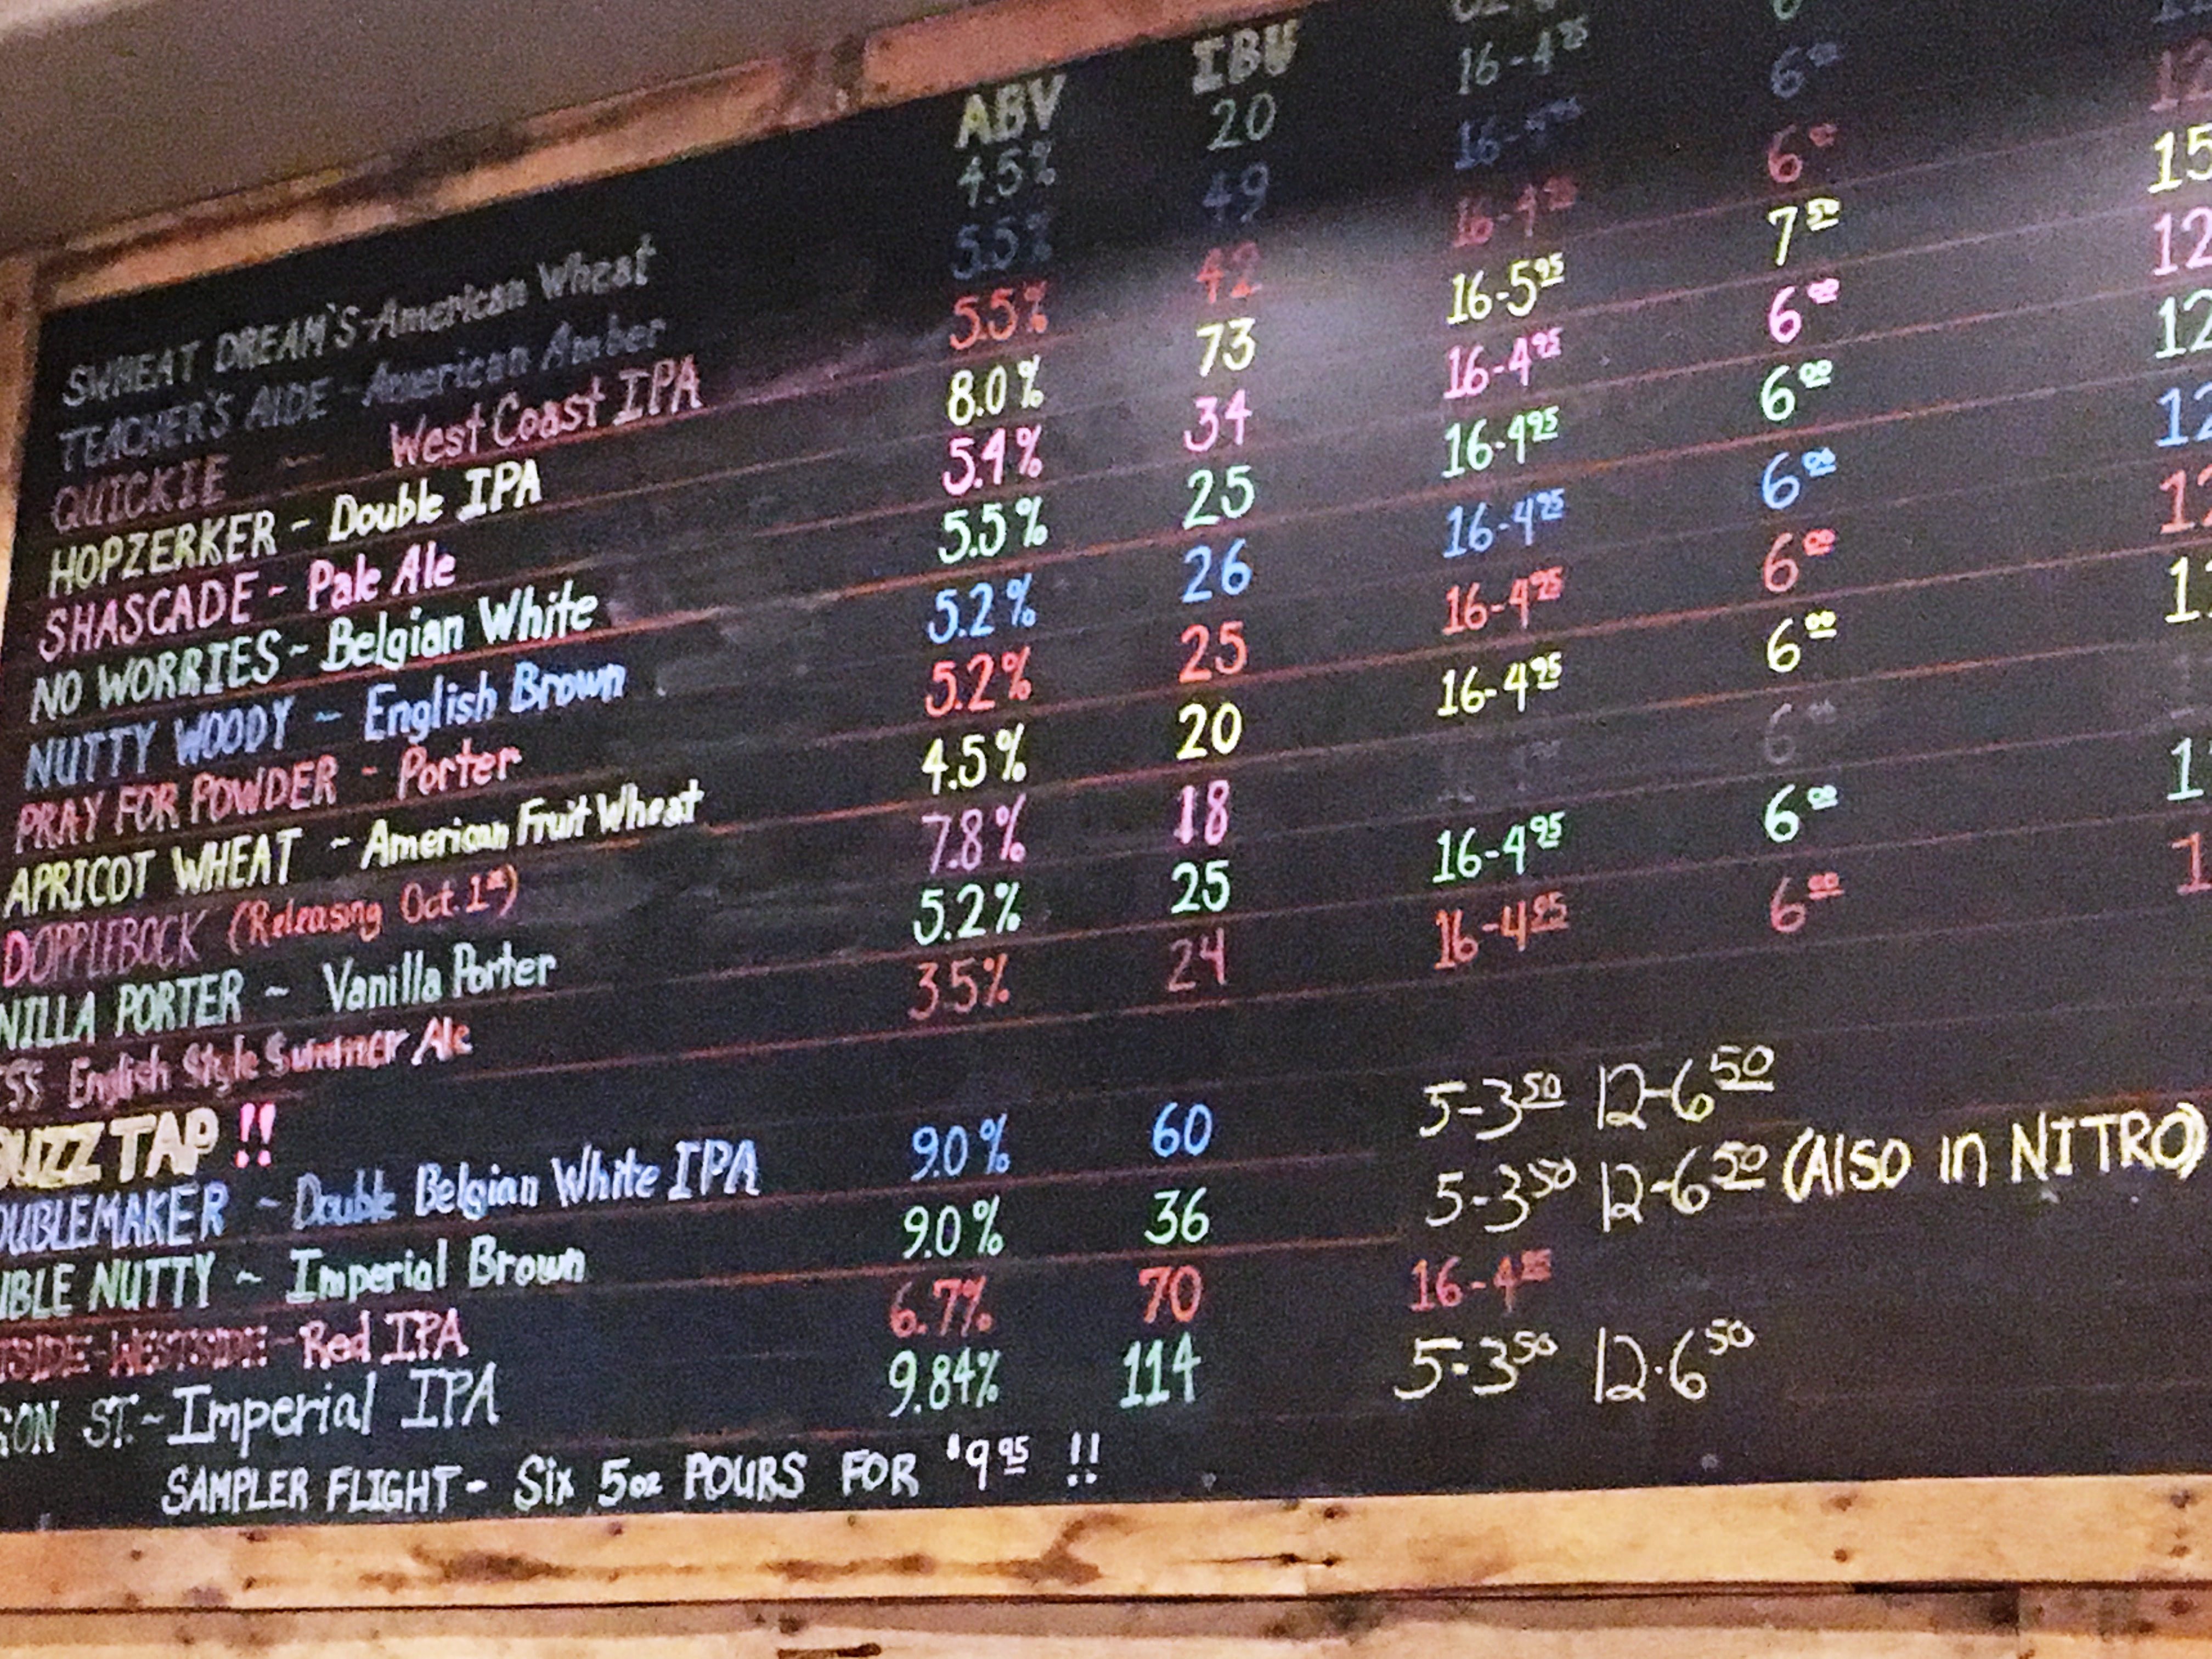 ABV IBU
SWHEAT DREAM'S-American Wheat 4.5% 20 16-4 95
TEACHER'S AIDE - American Amber 5.5% 49 16-4 95 6 00
QUICKIE ~ West Coast IPA 5.5% 42 16-4 95 6 00 12
HOPZERKER - Double IPA 8.0% 73 16-5 95 7 50 15
SHASCADE - Pale Ale 5.4% 34 16-4 95 6 00 12
NO WORRIES - Belgian White 5.5% 25 16-4 95 6 00 12
NUTTY WOODY ~ English Brown 5.2% 26 16-4 95 6 00 12
PRAY FOR POWDER - Porter 5.2% 25 16-4 95 6 00
APRICOT WHEAT ~ American Fruit Wheat 4.5% 20 16-4 95 6 00
DOPPLEBOCK (Releasing Oct. 1st) 7.8% 18 6 00
NILLA PORTER ~ Vanilla Porter 5.2% 25 16-4 95 6 00
SS English Style Summer Ale 3.5% 24 16-4 95 6 00
BUZZ TAP !!
OUBLEMAKER ~ Double Belgian White IPA 9.0% 60 5-3 50 12-6 50
UBLE NUTTY ~ Imperial Brown 9.0% 36 5-3 50 12-6 50 (Also in NITRO)
TSIDE-WESTSIDE - Red IPA 6.7% 70 16-4 95
SON ST. ~ Imperial IPA 9.84% 114 5-3 50 12-6 50
SAMPLER FLIGHT - Six 5oz POURS FOR $9 95 !!